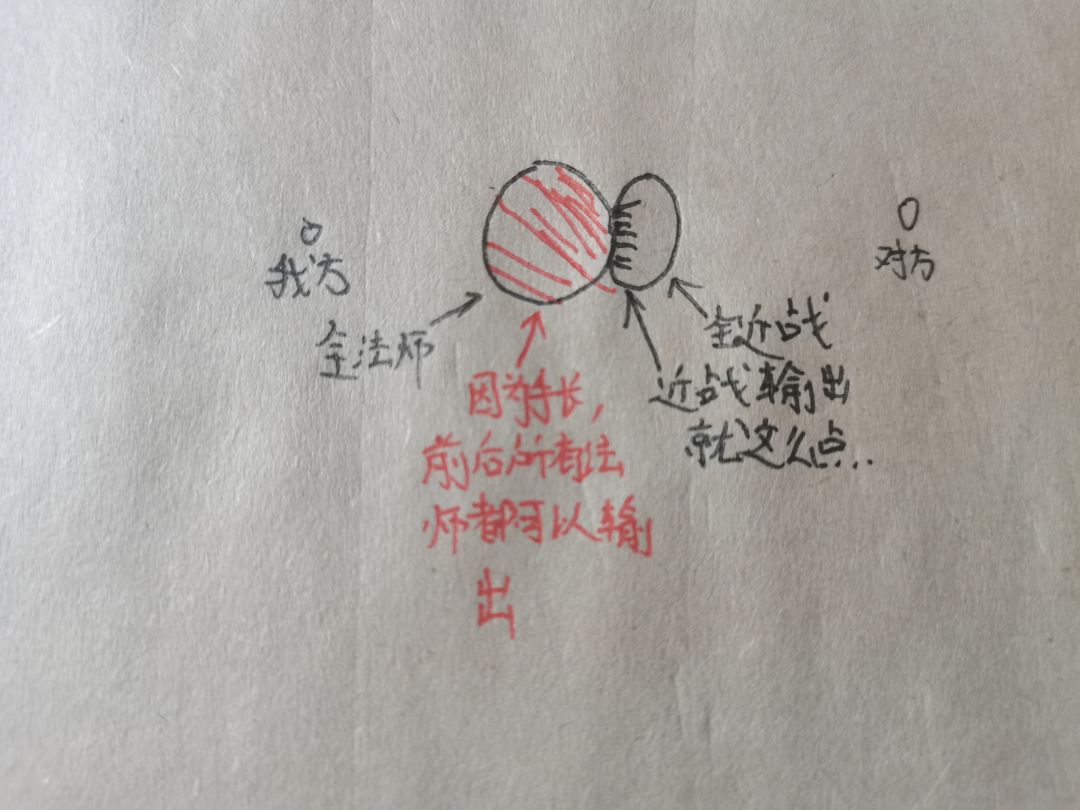 我方
对方
全法师
全近战
近战输出
就这么点..
因为手长,
前后所有法
师都可以输
出